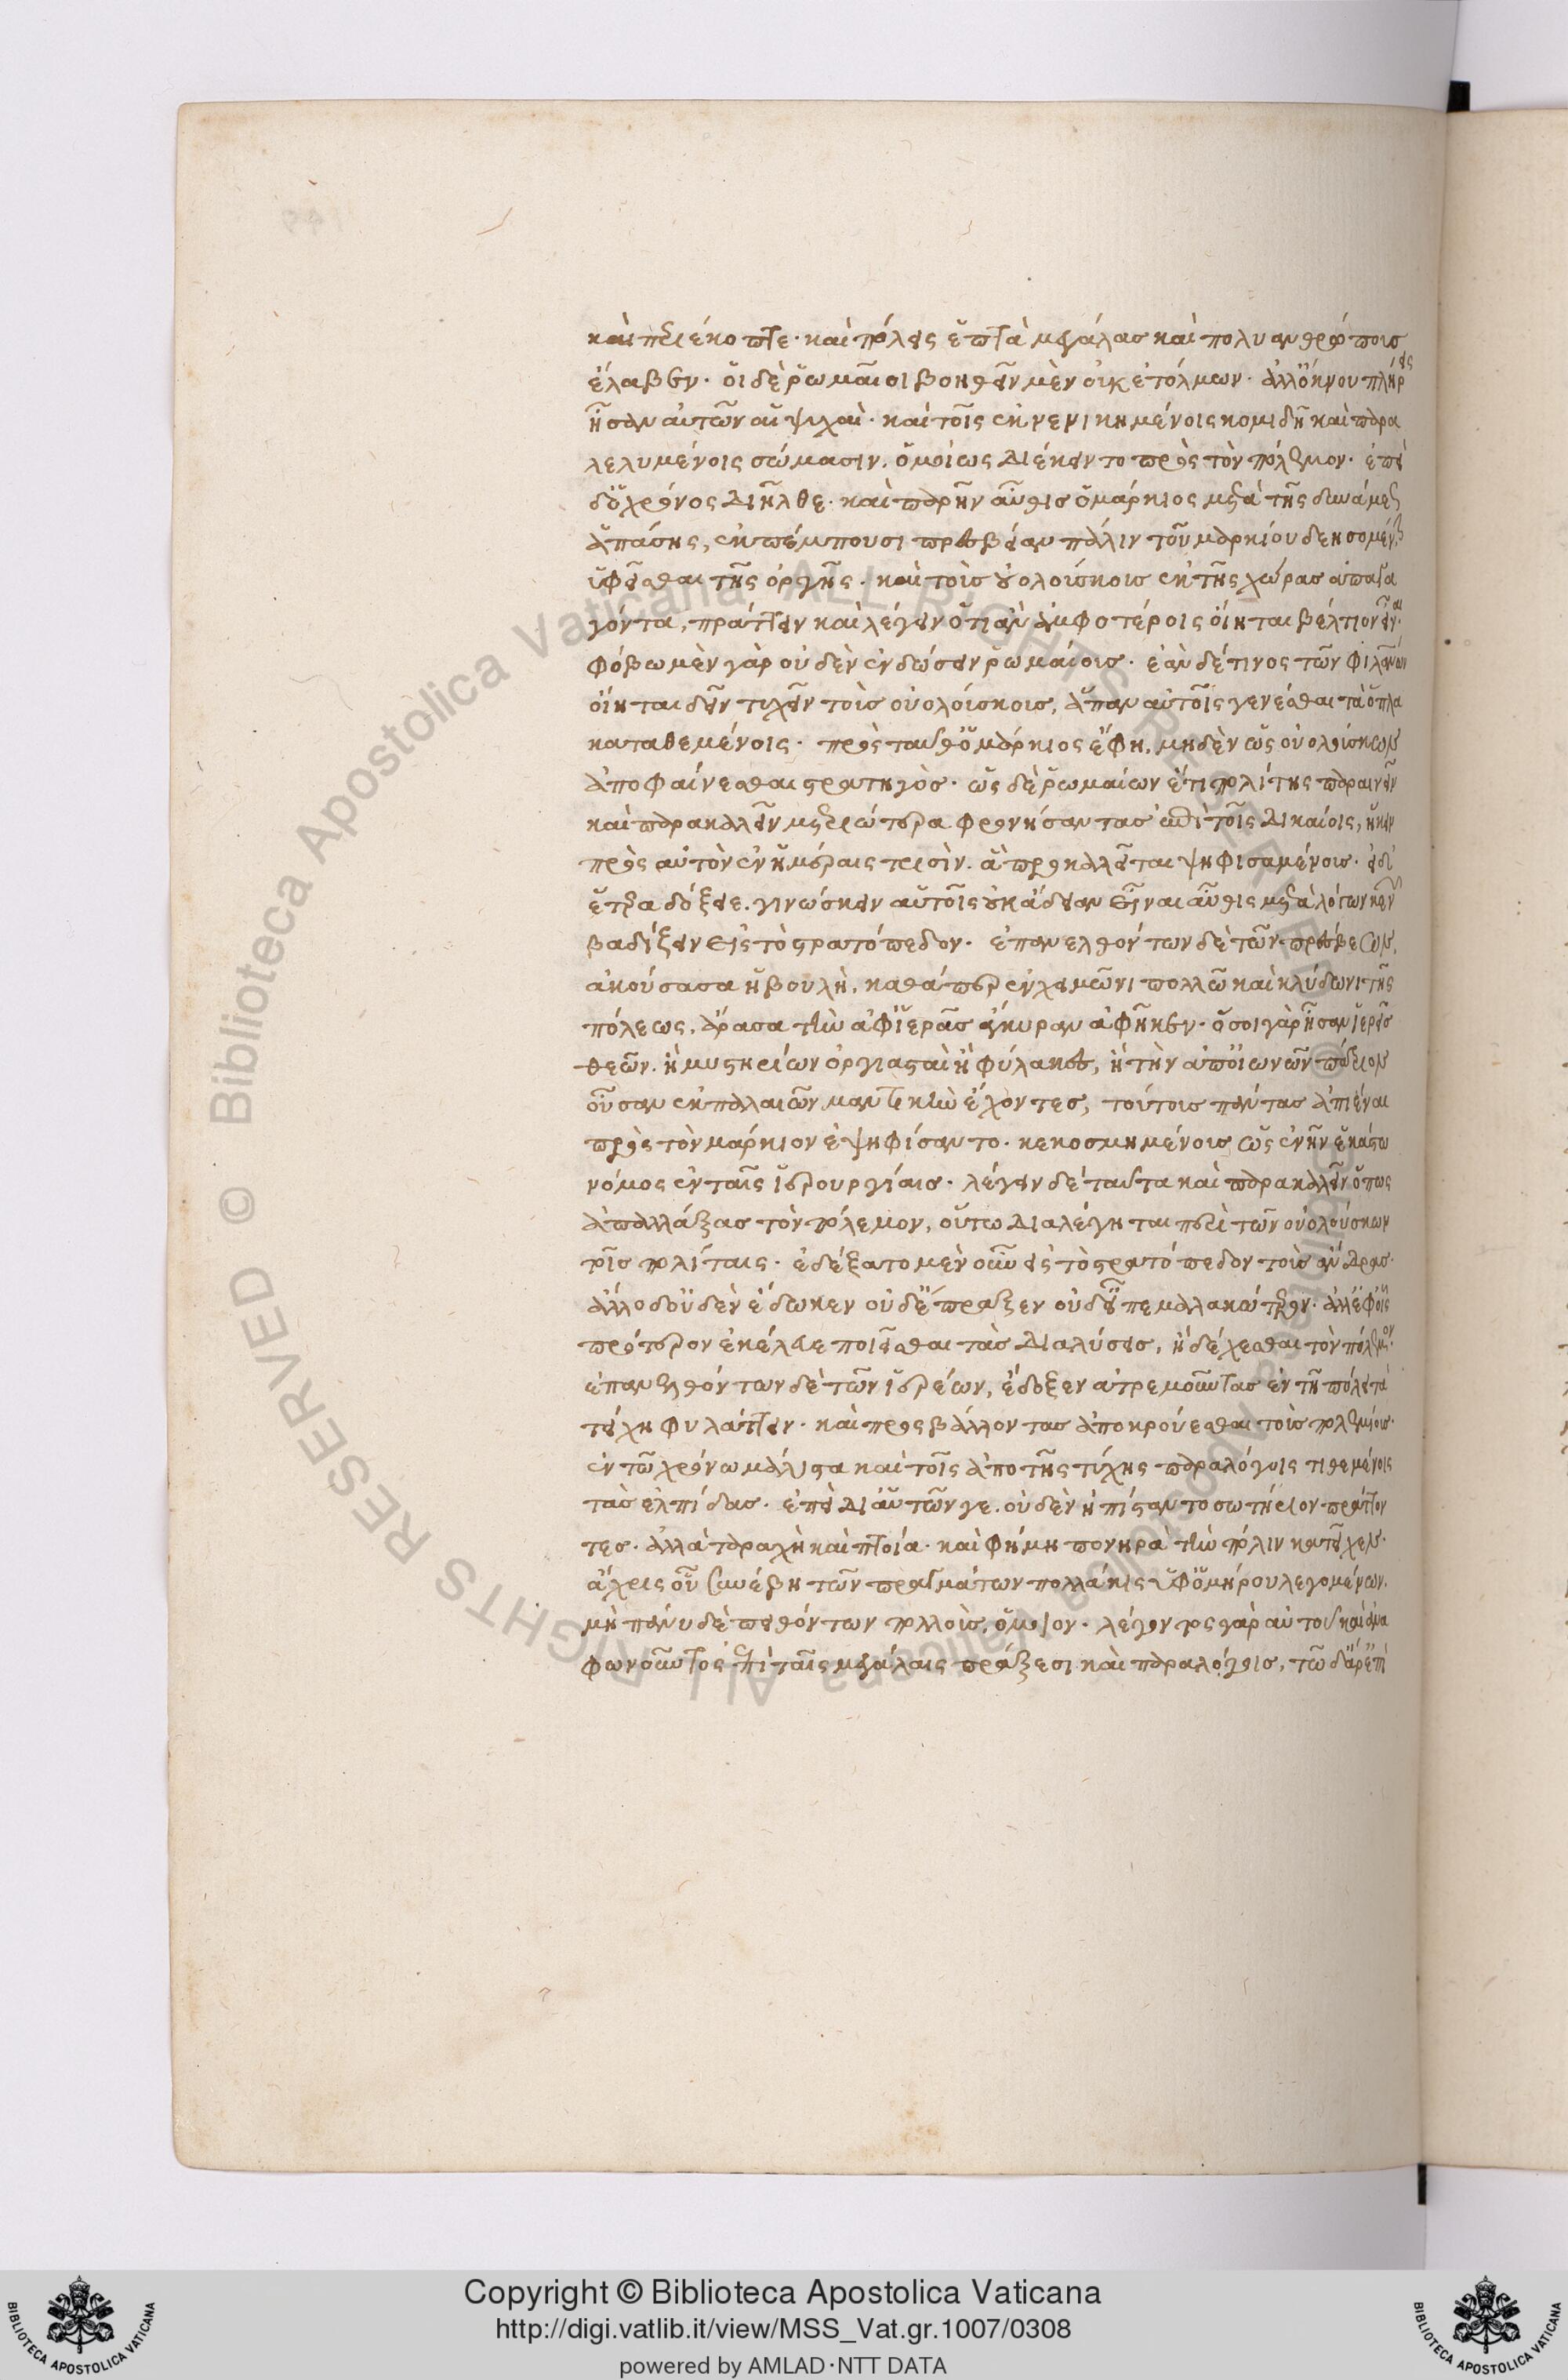 καὶ περιέκοπτε· καὶ πόλεις ἑπτὰ μεγάλας καὶ πολυανθρώπους
ἔλαβεν· οἱ δὲ ῥωμαῖοι βοηθεῖν μὲν οὐκ ἐτόλμων· ἀλλ' ὄκνου πλήρεις
ἦσαν αὐτῶν αἱ ψυχαὶ· καὶ τοῖς ἐκνενικημένοις κομιδῆ καὶ παρα
λελυμένοις σώμασιν, ὁμοίως διέκειντο πρὸς τὸν πόλεμον· ἐπεὶ
δ' ὁ χρόνος διῆλθε· καὶ παρῆν αὖθις ὁ μάρκιος μετὰ τῆς δυνάμεως
ἁπάσης, ἐκπέμπουσι πρεσβείαν πάλιν τοῦ μαρκίου δεησομένους
ὑφεῖσθαι τῆς ὀργῆς· καὶ τοὺς οὐολούσκους ἐκ τῆς χώρας ἀπαγα
γόντα, πράττειν καὶ λέγειν ὅτι ἂν ἀμφοτέροις οἴηται βέλτιον εἶναι·
φόβω μὲν γὰρ οὐδὲν ἐνδώσειν ῥωμαίους· ἐὰν δέ τινος τῶν φιλανθρώπων
οἴηται δεῖν τυχεῖν τοὺς οὐολούσκους, ἅπαν αὐτοῖς γενέσθαι τὰ ὅπλα
καταθεμένοις· πρὸς ταῦθ' ὁ μάρκιος ἔφη, μηδὲν ὡς οὐολούσκων
ἀποφαίνεσθαι στρατηγὸς· ὡς δὲ ῥωμαίων ἔτι πολίτης παραινεῖν
καὶ παρακαλεῖν μετριώτερα φρονήσαντας ἐπὶ τοῖς δικαίοις, ἥκειν
πρὸς αὐτὸν ἐν ἡμέραις τρισὶν. ἃ προκαλεῖται ψηφισαμένους· εἰ δ'
ἕτερα δόξειε. γινώσκειν αὐτοῖς οὐκ ἄδειαν εἶναι αὖθις μετὰ λόγων κενῶν
βαδίζειν εἰς τὸ στρατόπεδον· ἐπανελθόντων δὲ τῶν πρέσβεων,
ἀκούσασα ἡ βουλὴ, καθάπερ ἐν χειμῶνι πολλῶ καὶ κλύδωνι τῆς
πόλεως, ἄρασα τὴν ἀφ' ἱερᾶς ἄγκυραν ἀφῆκεν· ὅσοι γὰρ ἦσαν ἱερεῖς
θεῶν. ἢ μυστηρίων ὀργιασταὶ ἢ φύλακες, ἢ τὴν ἀπ' οἰωνῶν πάτριον
οὖσαν ἐκ παλαιῶν μαντικὴν ἔχοντες, τούτους πάντας ἀπιέναι
πρὸς τὸν μάρκιον ἐψηφίσαντο· κεκοσμημένους ὡς ἐν ἦν ἑκάστω
νόμος ἐν ταῖς ἱερουργίαις· λέγειν δὲ ταῦτα καὶ παρακαλεῖν ὅπως
ἀπαλλάξας τὸν πόλεμον, οὕτω διαλέγηται περὶ τῶν οὐολούσκων
τοῖς πολίταις· ἐδέξατο μὲν οὖν εἰς τὸ στρατόπεδον τοὺς ἄνδρας·
ἄλλο δ' οὐδὲν ἔδωκεν οὐδ' ἔπραξεν οὐδ' εἶπε μαλακώτερον· ἀλλ' ἐφ' οἷς
πρότερον ἐκέλευε ποιεῖσθαι τὰς διαλύσεις, ἢ δέχεσθαι τὸν πόλεμον·
ἐπανελθόντων δὲ τῶν ἱερέων, ἔδοξεν ἀτρεμοῦντας ἐν τῆ πόλει τὰ
τείχη φυλάττειν· καὶ προσβάλλοντας ἀποκρούεσθαι τοὺς πολεμίους·
ἐν τῶ χρόνω μάλιστα καὶ τοῖς ἀπὸ τῆς τύχης παραλόγοις τιθεμένους
τὰς ἐλπίδας· ἐπεὶ δι' αὑτῶν γε. οὐδὲν ἠπίσταντο σωτήριον πράττον
τες· ἀλλὰ ταραχὴ καὶ πτοία· καὶ φήμη πονηρὰ τὴν πόλιν κατεῖχεν·
ἄχρις οὗ συνέβη τῶν πραγμάτων πολλάκις ὑφ' ὁμήρου λεγομένων.
μὴ πάνυ δὲ πειθόντων πολλοὺς, ὅμοιον· λέγοντος γὰρ αὐτοῦ καὶ ἀνα
φωνοῦντος ἐπὶ ταῖς μεγάλαις πράξεσι καὶ παραλόγοις, τῶ δ' ἄρ' ἐπὶ
Copyright © Biblioteca Apostolica Vaticana
http://digi.vatlib.it/view/MSS_Vat.gr.1007/0308
powered by AMLAD·NTT DATA